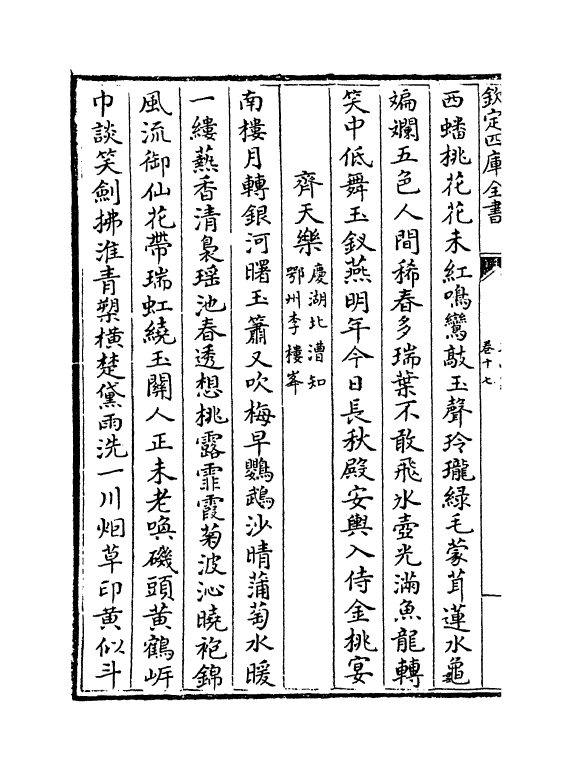 欽定四庫全書
卷十七
西蟠桃花花未紅鳴鸞敲玉聲玲瓏緑毛蒙茸蓮水龜
斒斕五色人間稀春多瑞葉不敢飛氷壺光滿魚龍轉
笑中低舞玉釵燕明年今日長秋殿安輿入侍金桃宴
齊天樂慶湖北漕知鄂州李樓峯
南樓月轉銀河曙玉簫又吹梅早鸚鵡沙晴蒲萄水暖
一縷爇香清裊瑶池春透想桃露霏霞菊波沁曉袍錦
風流御仙花帶瑞虹繞玉關人正未老喚磯頭黄鶴岸
巾談笑劒拂淮青槊横楚黛雨洗一川烟草印黄似斗